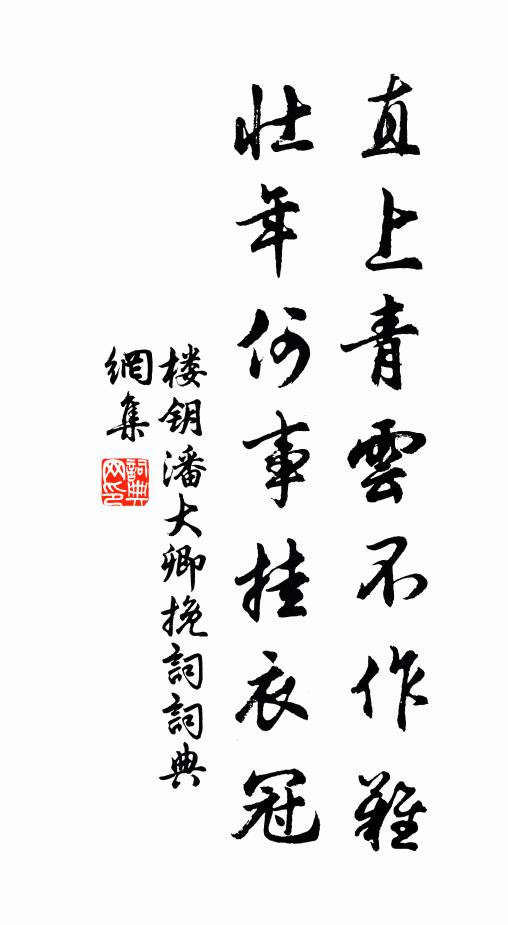 直上青雲不作難
壯年何事挂衣冠
楼钥潘大卿挽詞詞典
網集
詞典網印